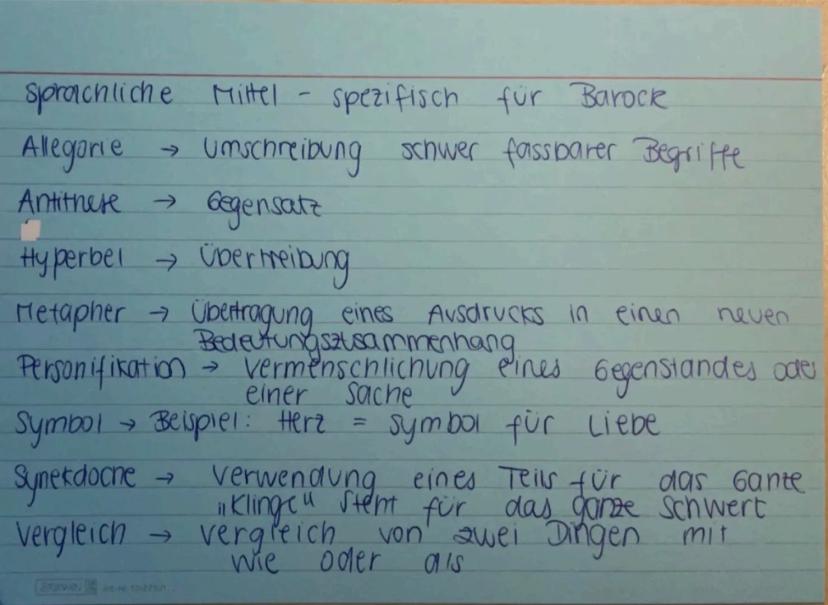 Sprachliche Mittel - spezifisch für Barock
Allegorie → Umschreibung schwer fassbarer Begriffe
Antithese → Gegensatz
Hyperbel → Übertreibung
Metapher → Übertragung eines Ausdrucks in einen neuen
Bedeutungszusammenhang
Personifikation → Vermenschlichung eines Gegenstandes oder
einer Sache
Symbol → Beispiel: Herz = Symbol für Liebe
Synekdoche → Verwendung eines Teils für das Ganze
„Klinge" steht für das ganze Schwert
Vergleich → Vergleich von zwei Dingen mit
wie oder als